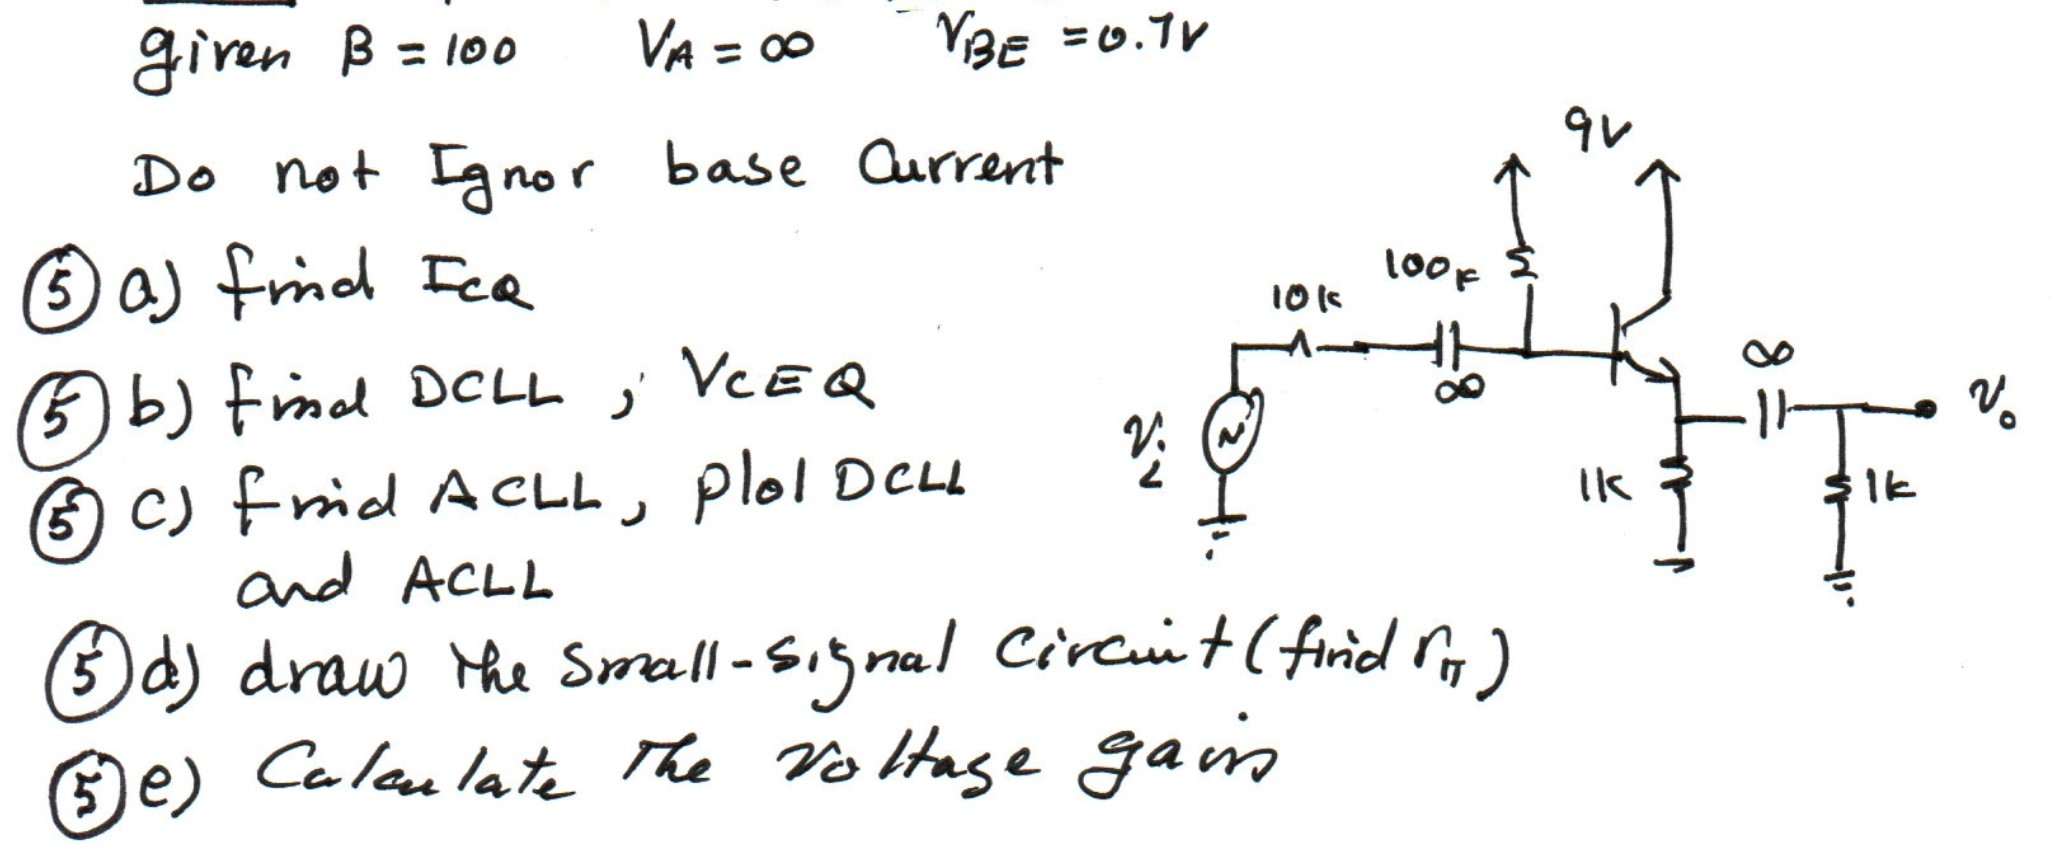 given β = 100 VA = ∞ VBE = 0.7V
Do not Ignor base Current
⑤ a) find ICQ
⑤ b) find DCLL ; VCEQ
⑤ c) find ACLL, plot DCLL
and ACLL
⑤ d) draw the small-signal Circuit (find rπ)
⑤ e) Calculate the voltage gain
9V
100K
10K
∞
∞
Vi
Vo
1K
1K